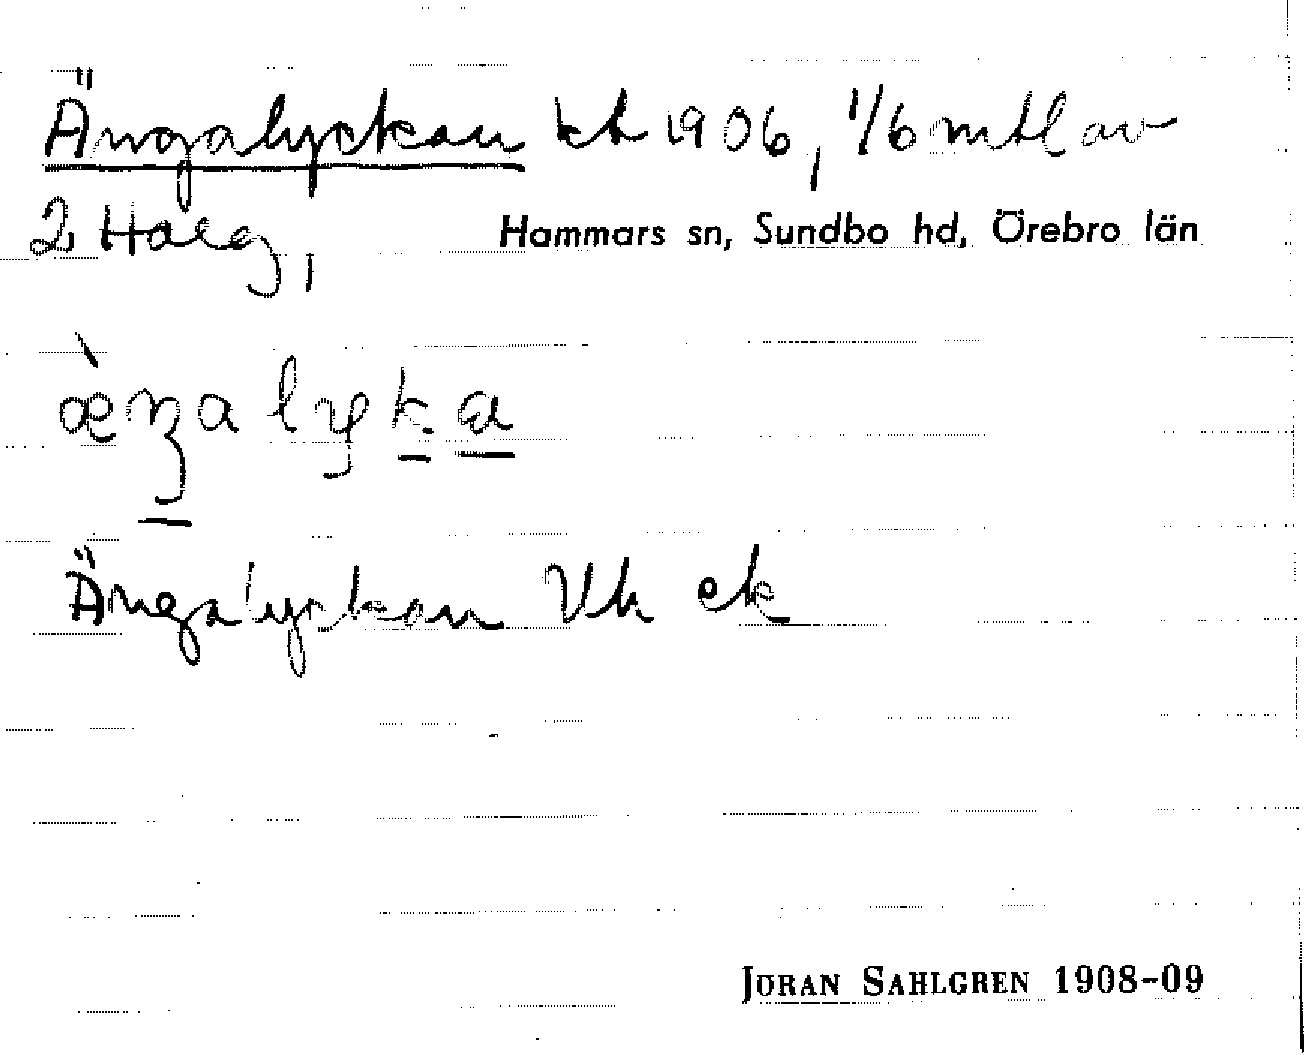 Ängalyckan kt 1906, 1/6 mtl av
2 Harg,
Hammars sn, Sundbo hd, Örebro län
Ängalyckan Vh ek
JÖRAN SAHLGREN 1908-09